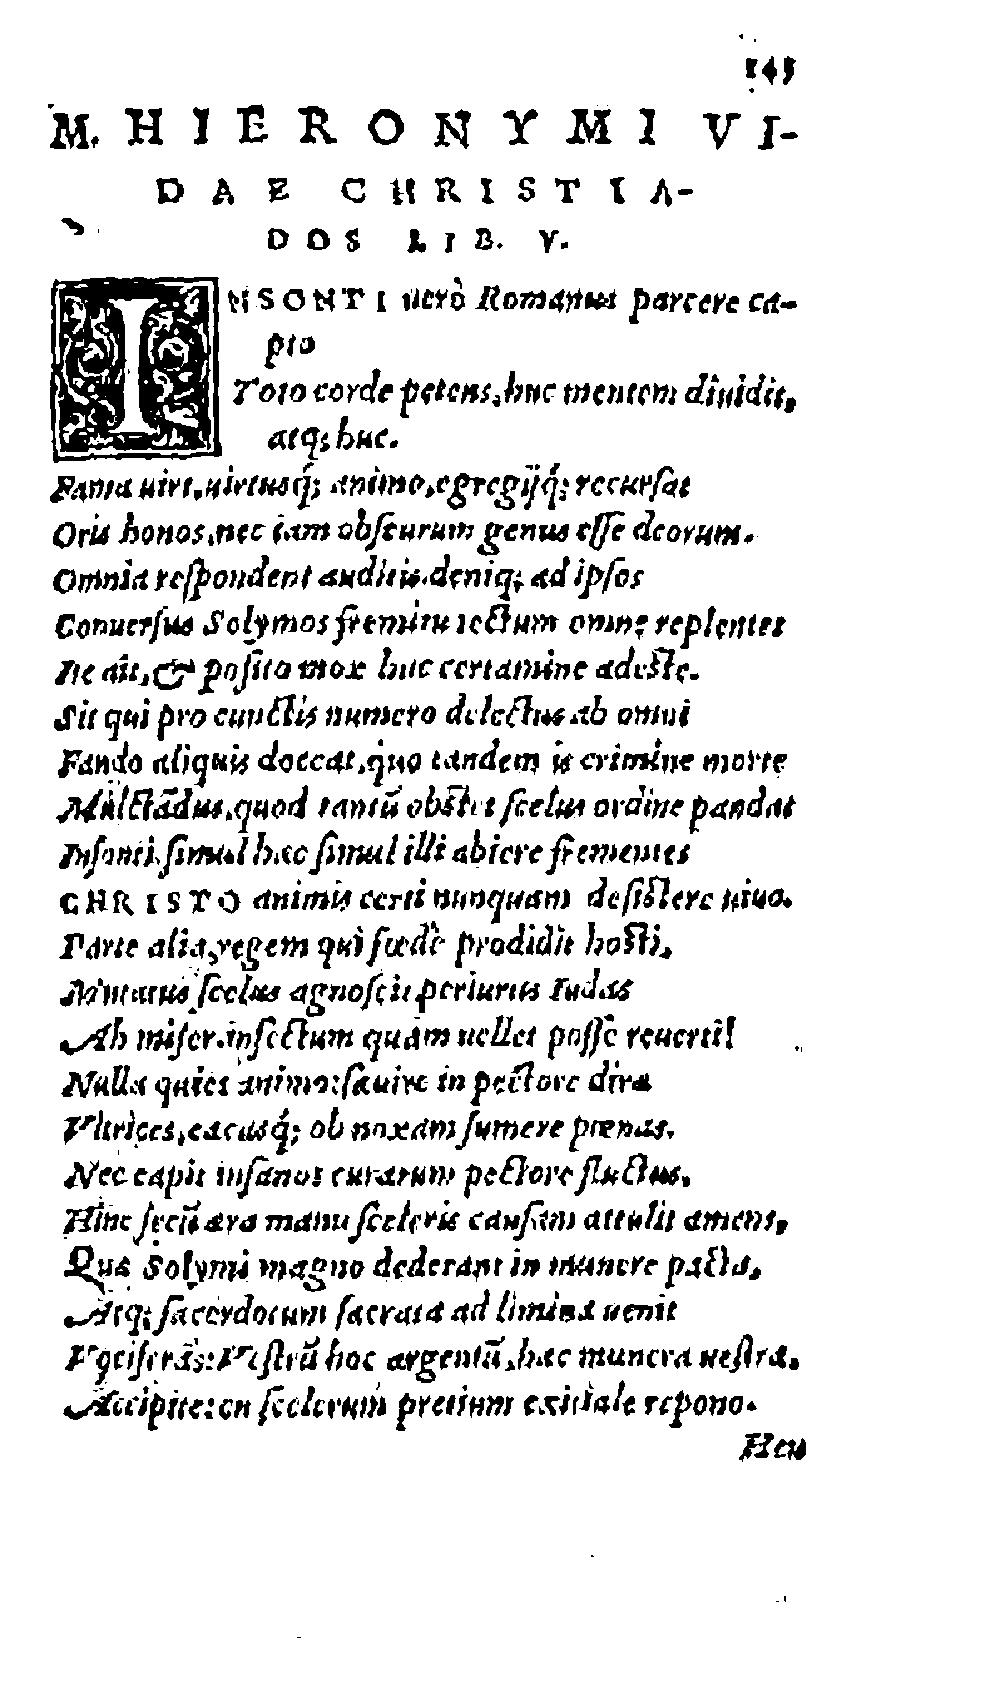 145
M. HIERONYMI VI-
DAE CHRISTIA-
DOS LIB. V.
INSONTI uerò Romanus parcere ca-
pto
Toto corde petens, huc mentem diuidit,
atq; huc.
Fama uiri, uirtusq́; animo, egregijq́; recursat
Oris honos, nec iam obscurum genus esse deorum.
Omnia respondent auditis. deniq; ad ipsos
Conuersus Solymos fremitu tectum omne replentes
Ite ait, & posito mox huc certamine adeste.
Sit qui pro cunctis numero delectus ab omni
Fando aliquis doceat, quo tandem is crimine morte
Mulctãdus, quod tantũ obstet scelus ordine pandat
Insonti. simul hæc simul illi abiere frementes
CHRISTO animis certi nunquam desistere uiuo.
Parte alia, regem qui fœdè prodidit hosti,
Mutatus scelus agnoscit periurus Iudas
Ah miser. infectum quàm uellet posse reuerti!
Nulla quies animo: sæuire in pectore diræ
Vltrices, cæcasq́; ob noxam sumere pœnas.
Nec capit insanos curarum pectore fluctus.
Hinc secũ æra manu sceleris causam attulit amens,
Quæ Solymi magno dederant in munere pacta,
Atq; sacerdotum sacrata ad limina uenit
Vociferãs: Vestrũ hoc argentũ, hæc munera uestra.
Accipite: en scelerum pretium exitiale repono.
Heu